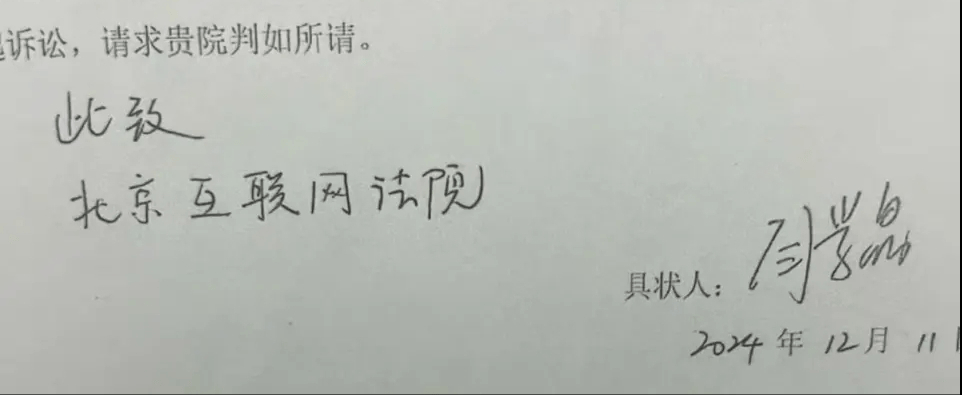 诉讼，请求贵院判如所请。
此致
北京互联网法院
具状人：闫学晶
2024年12月11